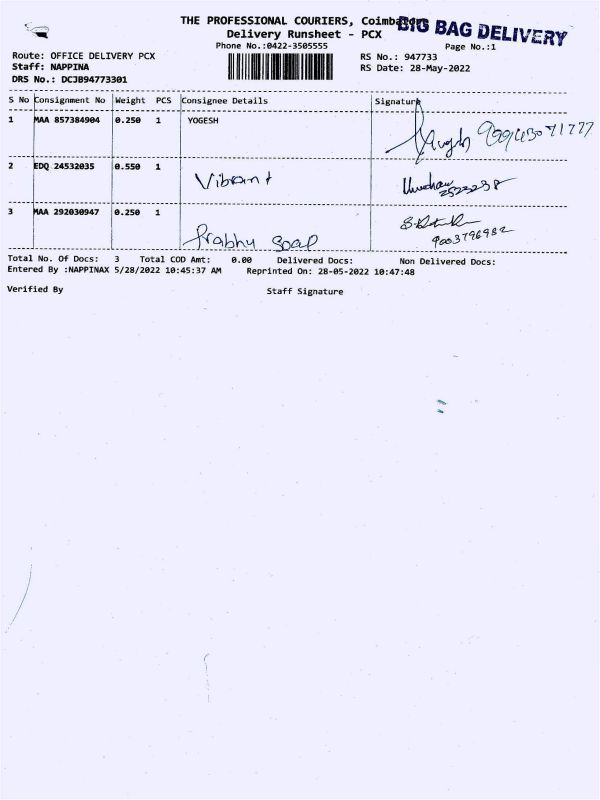 THE PROFESSIONAL COURIERS, Coimbatore
BIG BAG DELIVERY
Delivery Runsheet - PCX
Phone No.:0422-3505555
Page No.:1
Route: OFFICE DELIVERY PCX
RS No.: 947733
Staff: NAPPINA
RS Date: 28-May-2022
DRS No.: DCJB94773301
S No Consignment No Weight PCS Consignee Details Signature
1 MAA 857384904 0.250 1 YOGESH
2 EDQ 24532035 0.550 1 Vibrant
2523238
3 MAA 292030947 0.250 1 Prabhu Soap
9003796982
Total No. Of Docs: 3 Total COD Amt: 0.00 Delivered Docs: Non Delivered Docs:
Entered By :NAPPINAX 5/28/2022 10:45:37 AM Reprinted On: 28-05-2022 10:47:48
Verified By Staff Signature